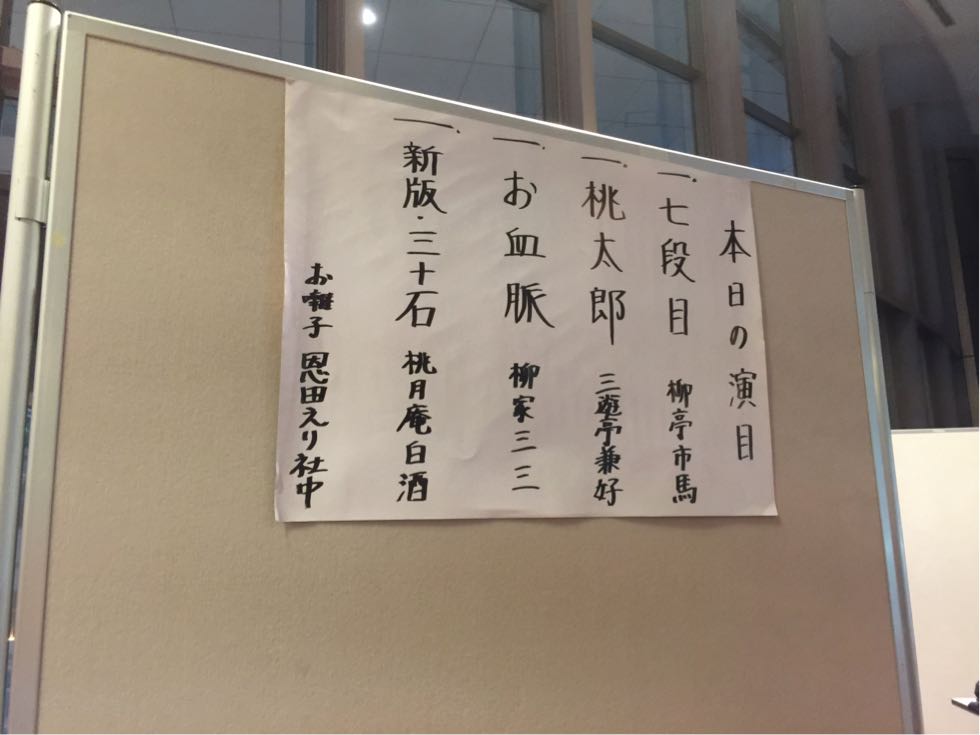 本日の演目
一、七段目 柳亭市馬
一、桃太郎 三遊亭兼好
一、お血脈 柳家三三
一、新版・三十石 桃月庵白酒
お囃子 恩田えり社中